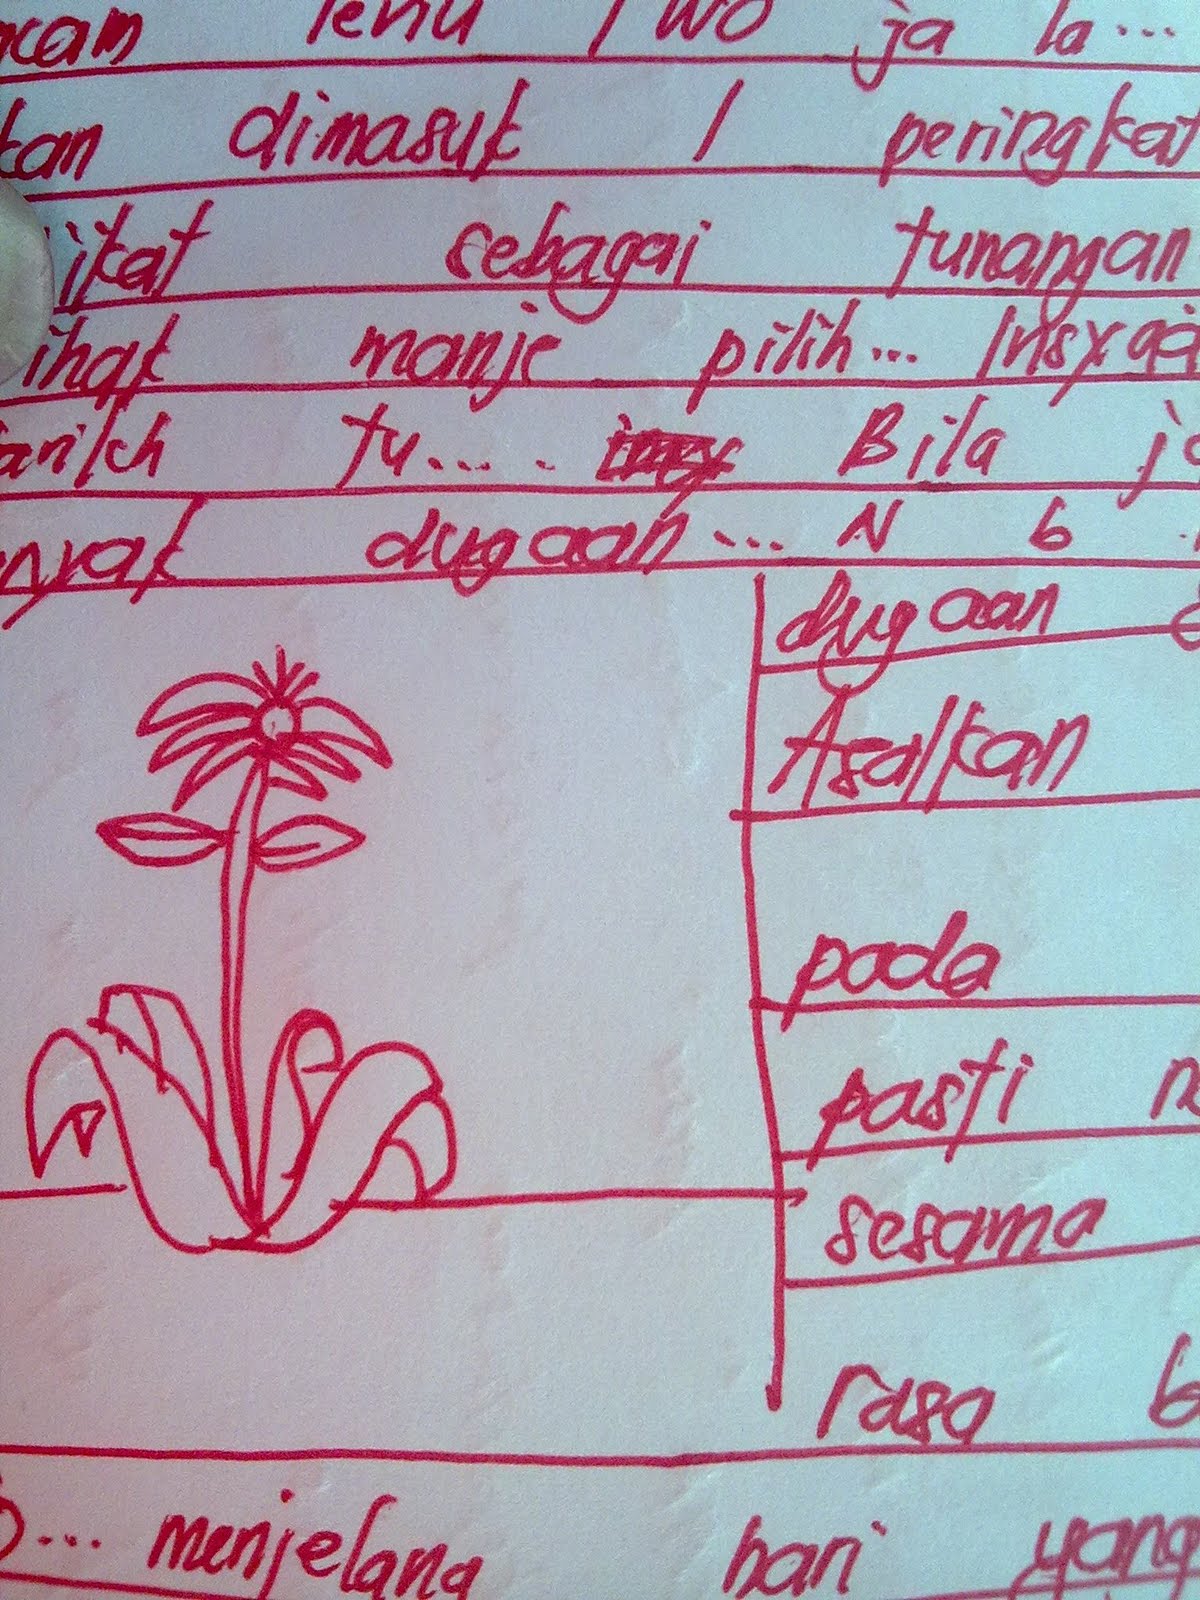 tenu Two ja la...
kan dimasuk 1 peringkat
ikat sebagai tunangan
ihat manje pilih... Insya
tu.... Bila
nyak dugaan... N b
dugaan
Asalkan
pada
pasti
sesama
rasa
... menjelang hari yang